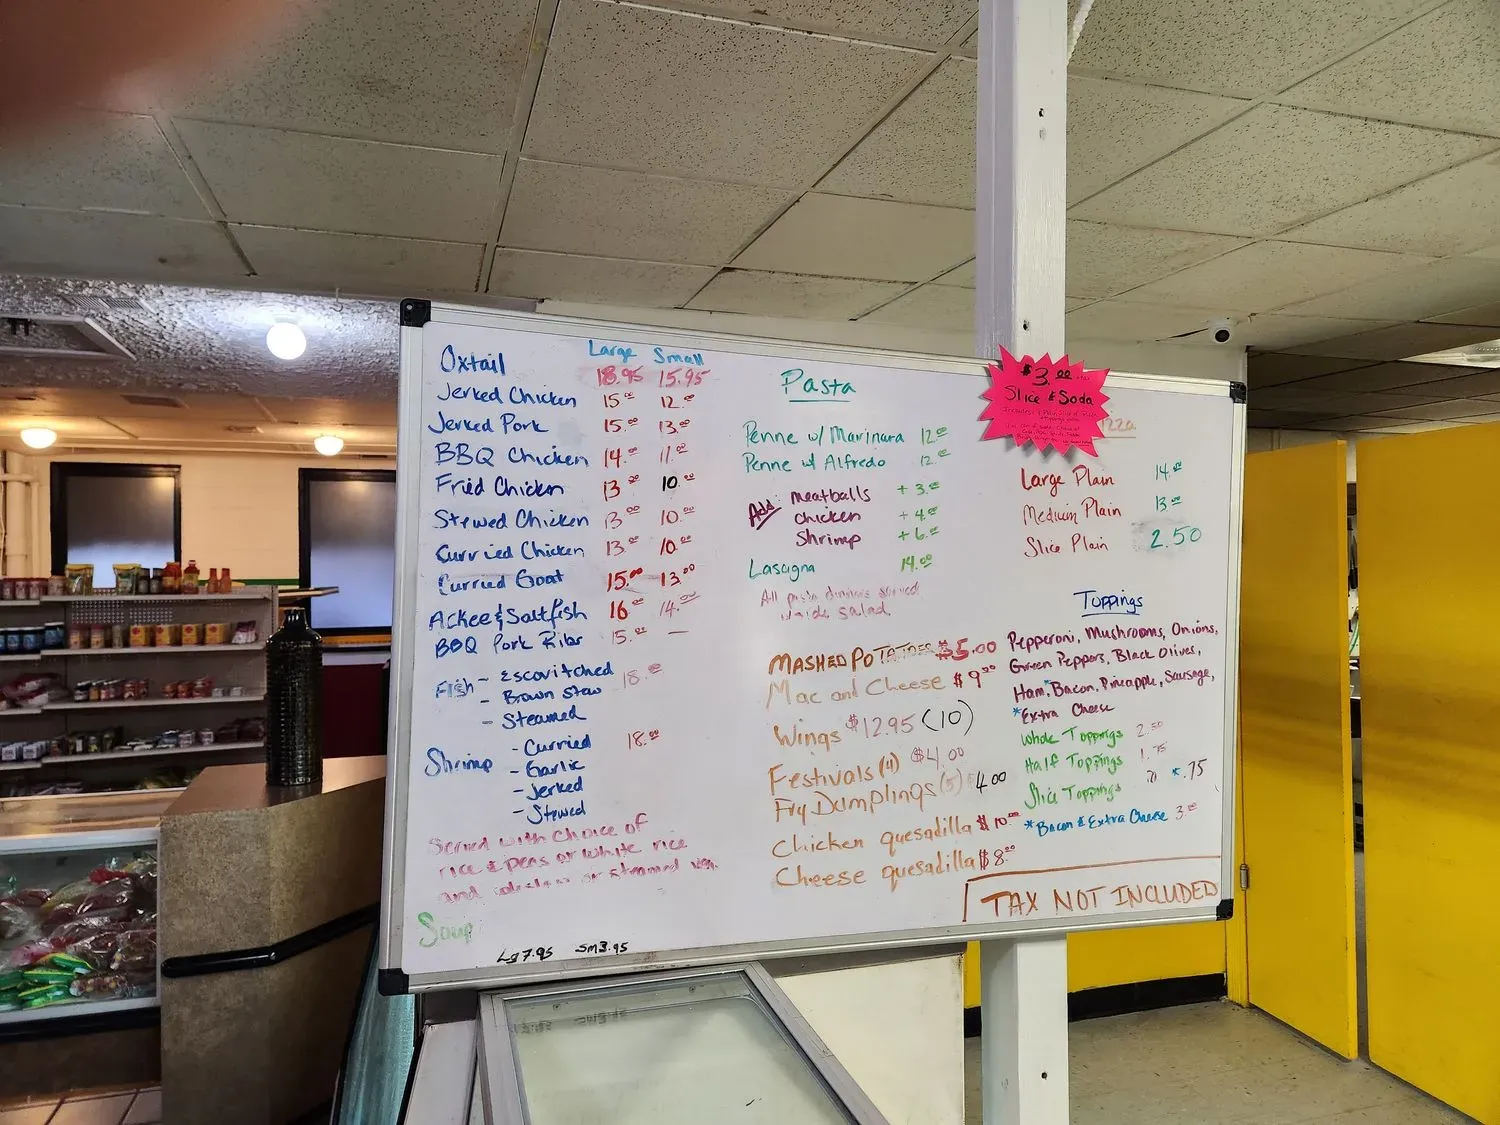 Large Small
Oxtail 18.95 15.95
Jerked Chicken 15.00 12.00
Jerked Pork 15.00 13.00
BBQ Chicken 14.00 11.00
Fried Chicken 13.00 10.00
Stewed Chicken 13.00 10.00
Curried Chicken 13.00 10.00
Curried Goat 15.00 13.00
Ackee & Saltfish 16.00 14.00
BBQ Pork Ribs 15.00 —
Fish - Escovitched 18.00
- Brown Stew
- Steamed
Shrimp - Curried 18.00
- Garlic
- Jerked
- Stewed
Served with choice of
rice & peas or white rice
and or steamed veg.
Soup
Lg 7.95 Sm 3.95
Pasta
Penne w/ Marinara 12.00
Penne w/ Alfredo 12.00
Add: meatballs + 3.00
chicken + 4.00
Shrimp + 6.00
Lasagna 14.00
All pasta dinners served
salad
MASHED POTATOES $5.00
Mac and Cheese $9.00
Wings $12.95 (10)
Festivals (4) $4.00
Fry Dumplings (5) $4.00
Chicken quesadilla $10.00
Cheese quesadilla $8.00
$3.00
Slice & Soda
zza
Large Plain 14.00
Medium Plain 13.00
Slice Plain 2.50
Toppings
Pepperoni, Mushrooms, Onions,
Green Peppers, Black Olives,
Ham, Bacon, Pineapple, Sausage,
*Extra Cheese
Whole Toppings 2.50
Half Toppings 1.75
Slice Toppings *.75
*Bacon & Extra Cheese 3.00
TAX NOT INCLUDED